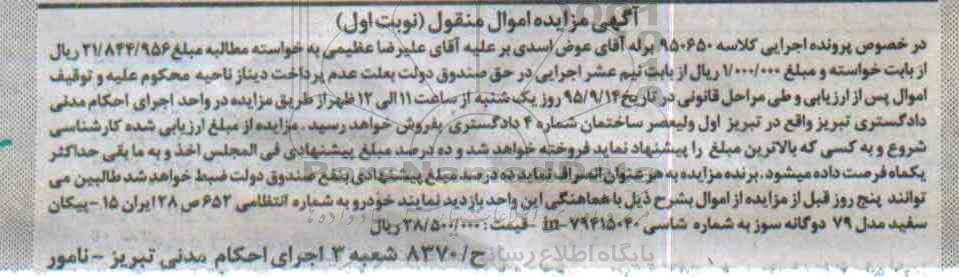 آگهی مزایده اموال منقول (نوبت اول)
در خصوص پرونده اجرایی کلاسه ۹۵۰۶۵۰ برله آقای عوض اسدی بر علیه آقای علیرضا عظیمی به خواسته مطالبه مبلغ ۲۱/۸۴۴/۹۵۶ ریال
از بابت خواسته و مبلغ ۱/۰۰۰/۰۰۰ ریال از بابت نیم عشر اجرایی در حق صندوق دولت بعلت عدم پرداخت دیناز ناحیه محکوم علیه و توقیف
اموال پس از ارزیابی و طی مراحل قانونی در تاریخ ۹۵/۹/۱۴ روز یک شنبه از ساعت ۱۱ الی ۱۲ ظهر از طریق مزایده در واحد اجرای احکام مدنی
دادگستری تبریز واقع در تبریز اول ولیعصر ساختمان شماره ۴ دادگستری بفروش خواهد رسید. مزایده از مبلغ ارزیابی شده کارشناسی
شروع و به کسی که بالاترین مبلغ را پیشنهاد نماید فروخته خواهد شد و ده درصد مبلغ پیشنهادی فی المجلس اخذ و به ما بقی حداکثر
یکماه فرصت داده میشود. برنده مزایده به هر عنوان انصراف نماید ده درصد مبلغ پیشنهادی بنفع صندوق دولت ضبط خواهد شد طالبین می
توانند پنج روز قبل از مزایده از اموال بشرح ذیل با هماهنگی این واحد بازدید نمایند خودرو به شماره انتظامی ۶۵۲ ص ۲۸ ایران ۱۵ - پیکان
سفید مدل ۷۹ دوگانه سوز به شماره شاسی ۷۹۴۱۵۰۴۰-in - قیمت: ۲۸/۵۰۰/۰۰۰ ریال
ح/۸۳۷۰ شعبه ۳ اجرای احکام مدنی تبریز - نامور